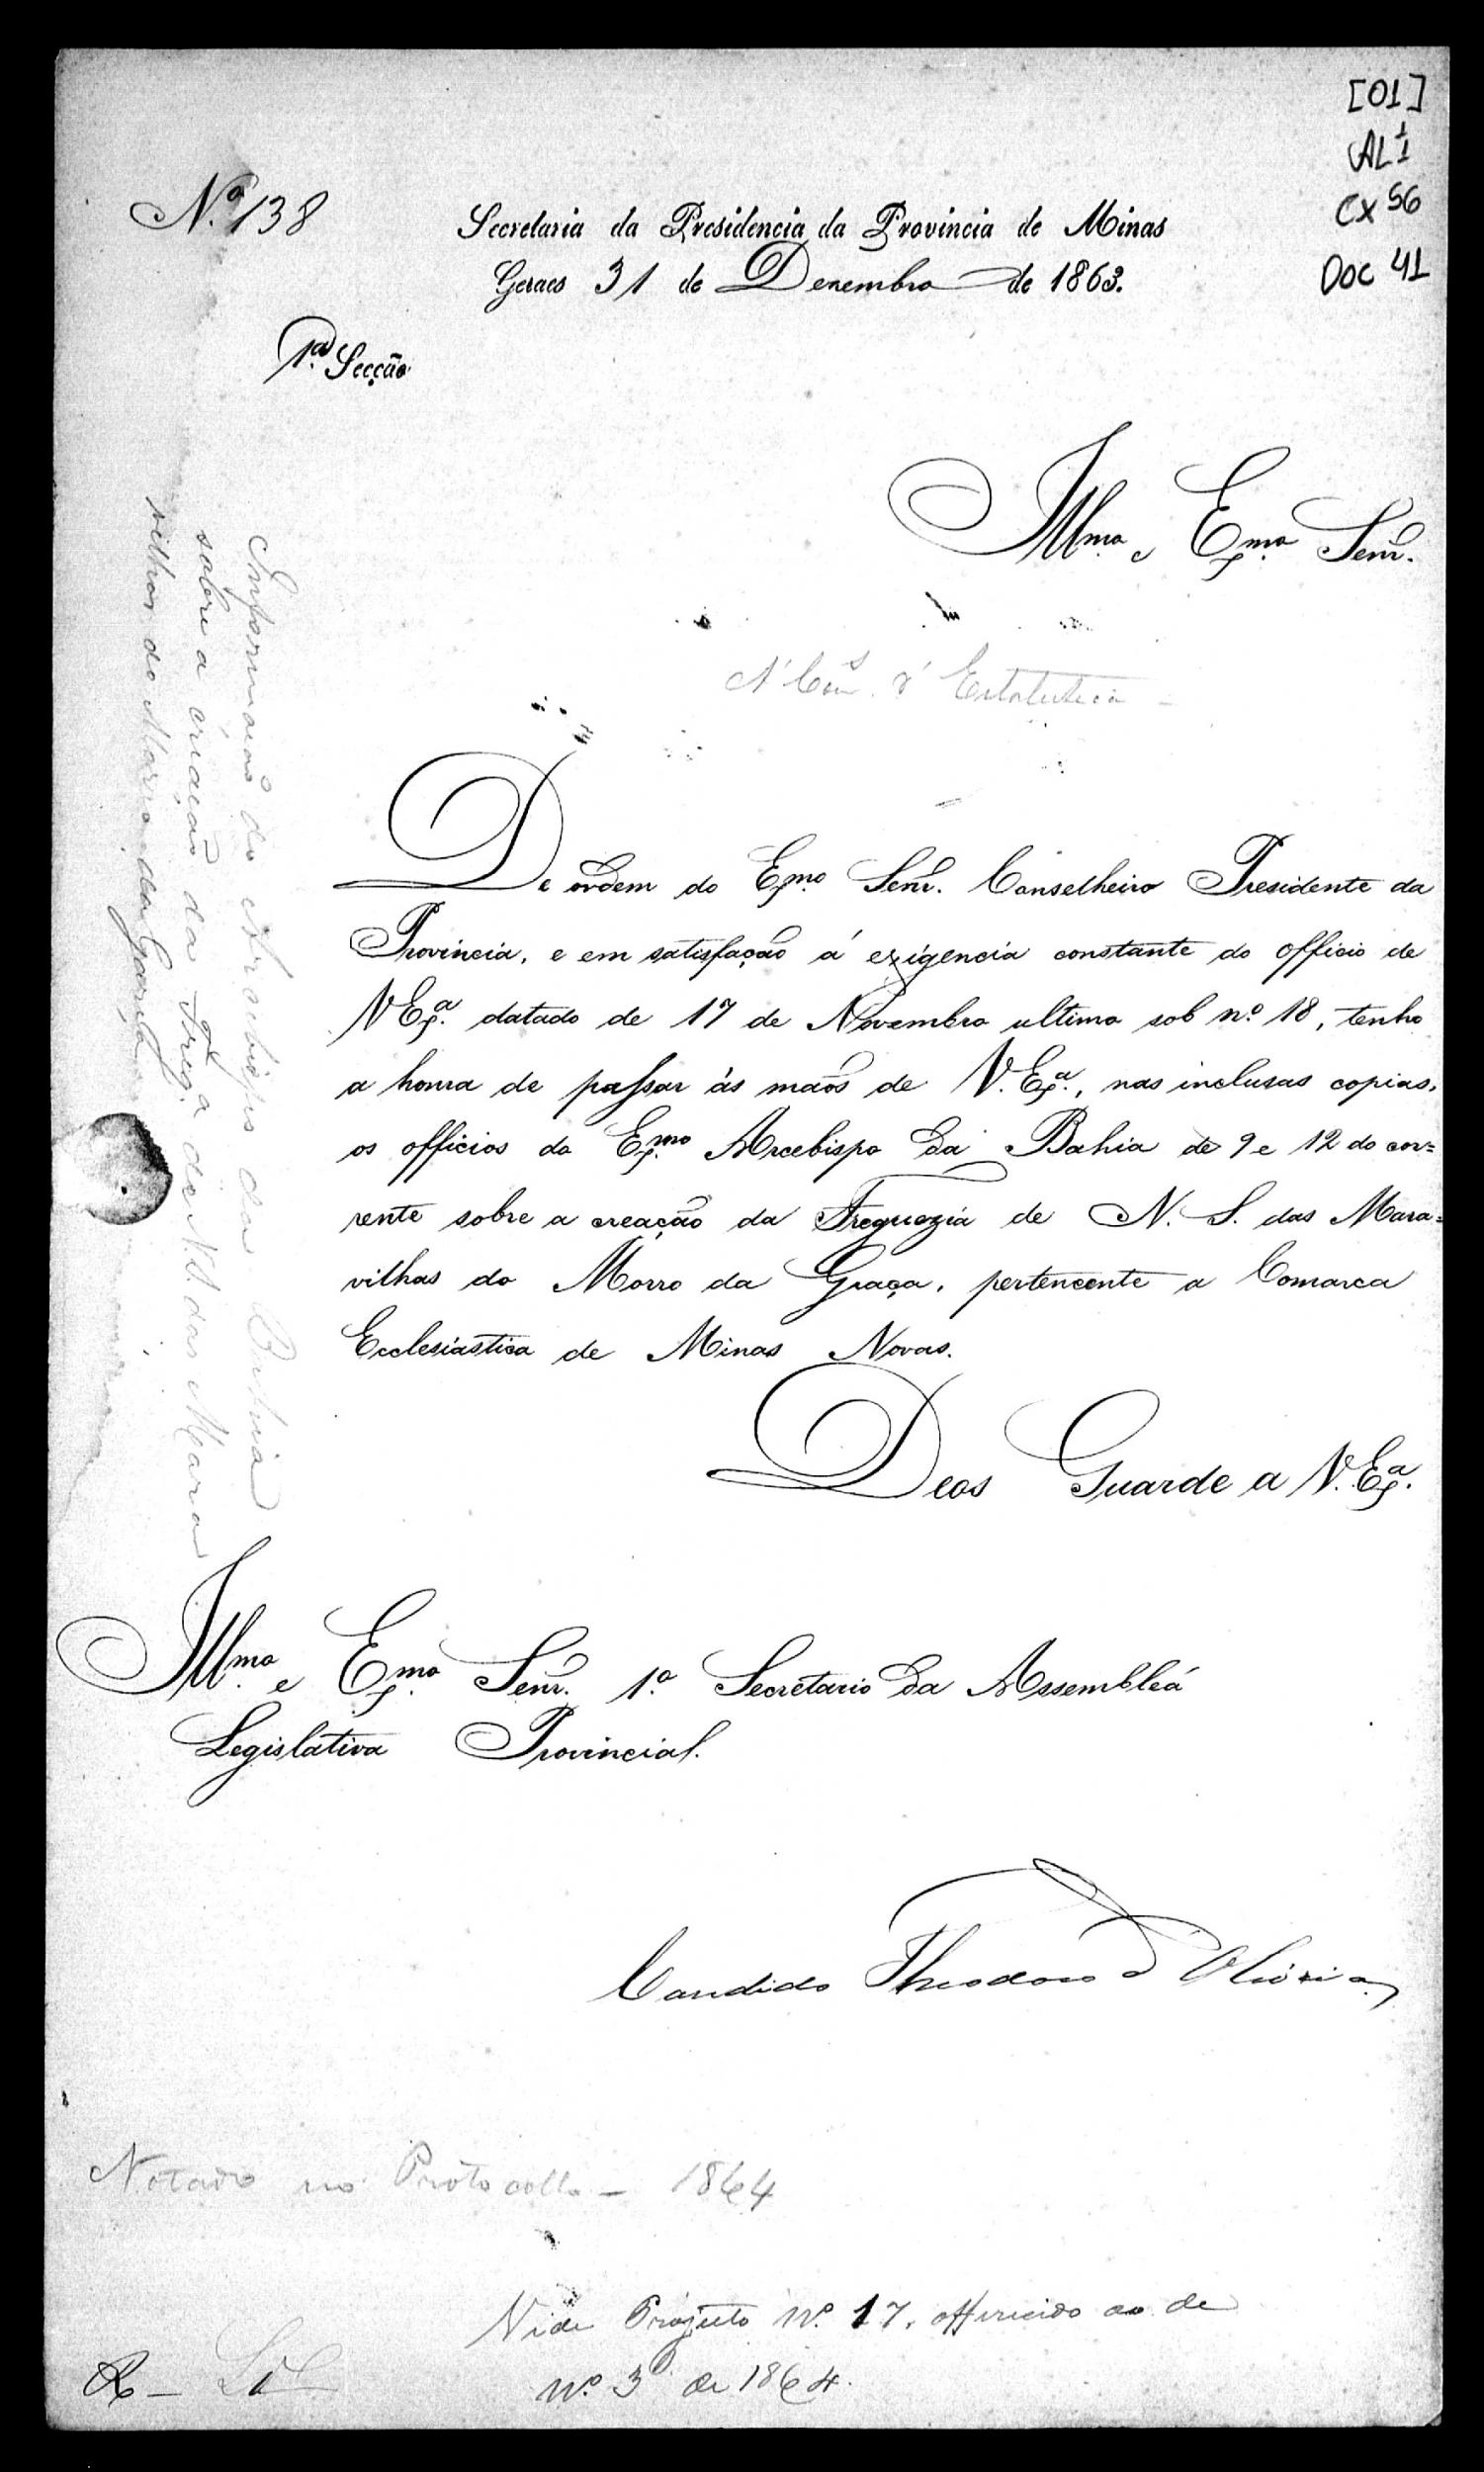 [01]
AL 1
CX 56
DOC 41
Nº 138
Secretaria da Presidencia da Provincia de Minas
Geraes 31 de Dezembro de 1863.
1ª Secção
Illmo. e Exmo. Senr.
A' Com. d' Estatistica
De ordem do Exmo. Senr. Conselheiro Presidente da
Provincia, e em satisfação á exigencia constante do officio de
V Exª. datado de 17 de Novembro ultimo sob nº 18, tenho
a honra de passar ás mãos de V. Exª., nas inclusas copias,
os officios do Exmo. Arcebispo da Bahia de 9 e 12 do cor=
rente sobre a creação da Freguezia de N. S. das Mara=
vilhas do Morro da Graça, pertencente a Comarca
Ecclesiastica de Minas Novas.
Deos Guarde a V. Exª.
Illmo. e Exmo. Senr. 1º Secretario da Assembleá
Legislativa Provincial.
Candido Theodoro d' Oliveira
Informacão do Arcebispo da Bahia
sobre a criacão da Freg.ª de N. S. das Mara
vilhas do Morro da Graça
Notado no Protocollo - 1864
Vide Projecto Nº. 17, offerecido ao de
Nº. 3 de 1864.